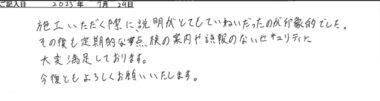 ご記入日 2025年 7月 29日
施工いただく際に説明がとてもていねいだったのが印象的でした。
その後も定期的な点検の案内や誤報のないセキュリティに
大変満足しております。
今後ともよろしくお願いいたします。